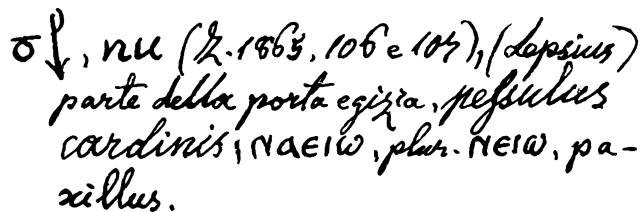 , nu (Z. 1865, 106 e 107), (Lepsius)
parte della porta egizia, pessulus
cardinis; ⲛⲁⲉⲓⲱ, plur. ⲛⲉⲓⲱ, pa-
xillus.